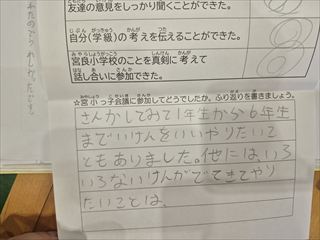 友達の意見をしっかり聞くことができた。
自分(学級)の考えを伝えることができた。
宮良小学校のことを真剣に考えて
話し合いに参加できた。
☆宮小っ子会議に参加してどうでしたか。ふり返りを書きましょう。
さんかしてみて1年生から6年生
までいけんをいいやりたいこ
ともありました。他には、いろ
いろないけんがでてきてやり
たいことは、